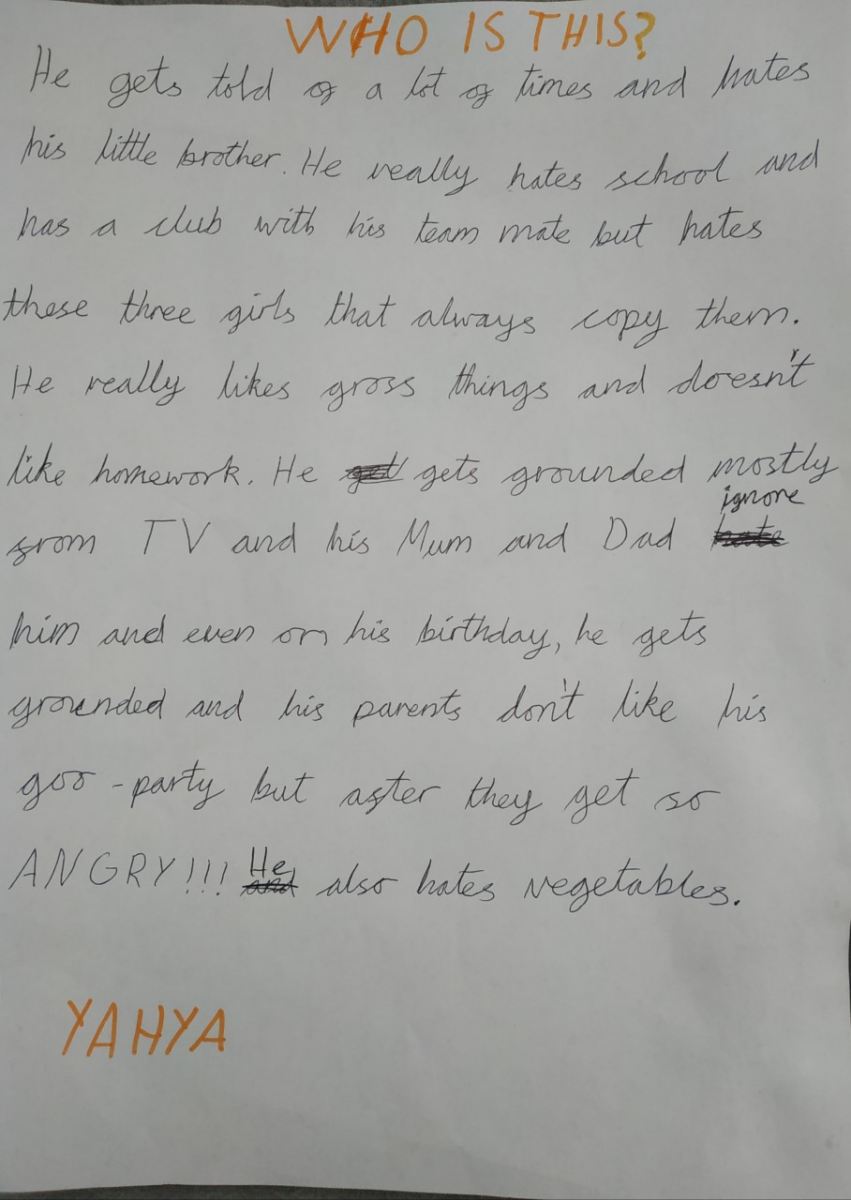 WHO IS THIS?
He gets told of a lot of times and hates
his little brother. He really hates school and
has a club with his team mate but hates
these three girls that always copy them.
He really likes gross things and doesn't
like homework. He get gets grounded mostly
ignore
from TV and his Mum and Dad hate
him and even on his birthday, he gets
grounded and his parents don't like his
goo-party but after they get so
ANGRY!!! He and also hates vegetables.
YAHYA